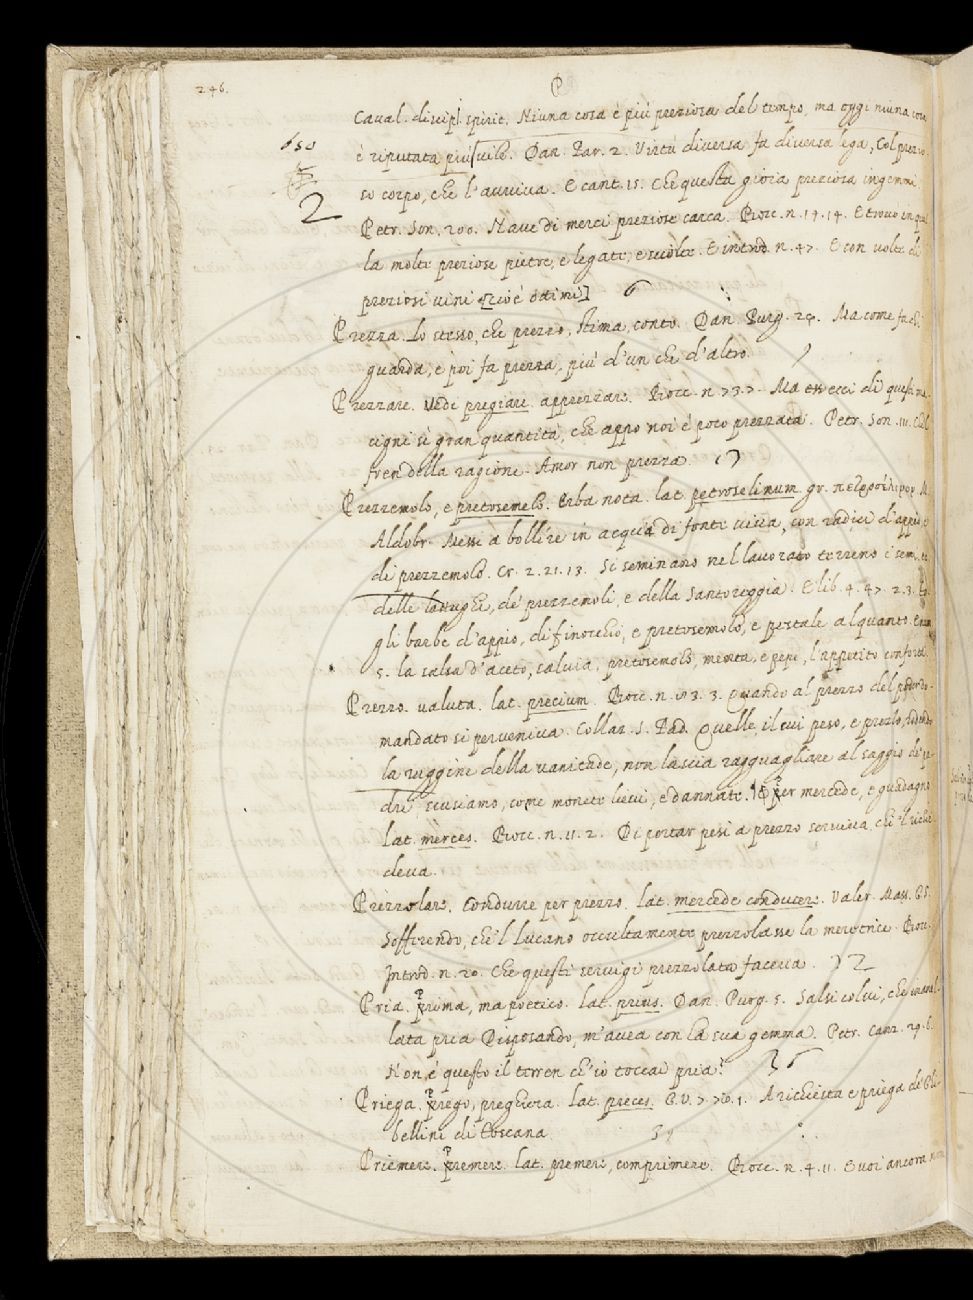 246.
P
Caval. discipl. spirit. Niuna cosa è più preziosa del tempo, ma oggi niuna cosa
è riputata più vile. Dan. Par. 2. Virtù diversa fa diversa lega, Col prezio-
so corpo, che l'avviva. E cant. 15. Che questa gioia preziosa ingemmi
2
Petr. Son. 200. Nave di merci preziose carca. Bocc. n. 14. 14. E trovò in quel
la molte preziose pietre, e legate, e sciolte. E introd. n. 47. E con volte di
preziosi vini [cioè ottimi] 6
Prezza. Lo stesso, che prezzo, stima, conto. Dan. Purg. 24. Ma come fa chi
guarda, e poi fa prezza, più d'un che d'altro.
Prezzare. Vedi pregiare apprezzare. Bocc. n. 73. 7. Ma ecci di questi ma-
cigni sì gran quantità, che appo noi è poco prezzata. Petr. Son. 11. Ch'l
fren della ragione Amor non prezza.
Prezzemolo, e pretosemolo. Erba nota. lat. petroselinum gr. πετροσέλινον M.
Aldobr. Messi a bollire in acqua di fonte viva, con radici d'appio e
di prezzemolo. Cr. 2. 21. 13. Si seminano nel lavorato terreno i semi
delle lattughe, de' prezzemoli, e della Santoreggia. E lib. 4. 47. 2. 3.
gli barbe d'appio, di finocchio, e pretosemolo, e pestale alquanto.
5. la salsa d'aceto, salvia, pretosemolo, menta, e pepe, l'appetito conforta.
Prezzo. valuta. lat. precium. Bocc. n. 3. 3. Quando al prezzo del podere do-
mandato si perveniva. Collaz. S. Pad. Quelle, il cui peso, e prezzo, rodendo
la ruggine della vanitade, non lascia ragguagliare al saggio de' pa-
dri, schiviamo, come monete lievi, e dannate. per mercede, e guadagno
lat. merces. Bocc. n. 11. 2. Di portar pesi a prezzo serviva chi 'l richie-
deva.
Prezzolare. Condurre per prezzo. lat. mercede conducere. Valer. Mass. P. S.
Sofferendo, che 'l Lucano occultamente prezzolasse la meretrice. Bocc.
Introd. n. 20. Che questi servigi prezzolata faceva. 72
Pria. prima, ma poetico. lat. prius. Dan. Purg. 5. Salsi colui, che inanel-
lata pria Disposando, m'avea con la sua gemma. Petr. Canz. 29. 6.
Non è questo il terren ch'io toccai pria? 36
Priega. prego, preghiera. lat. preces. G. V. 7. 76. 1. A richiesta e priega de' Ghi-
bellini di Toscana
Priemere. premere. lat. premere, comprimere. Bocc. n. 4. 11. E voi ancora